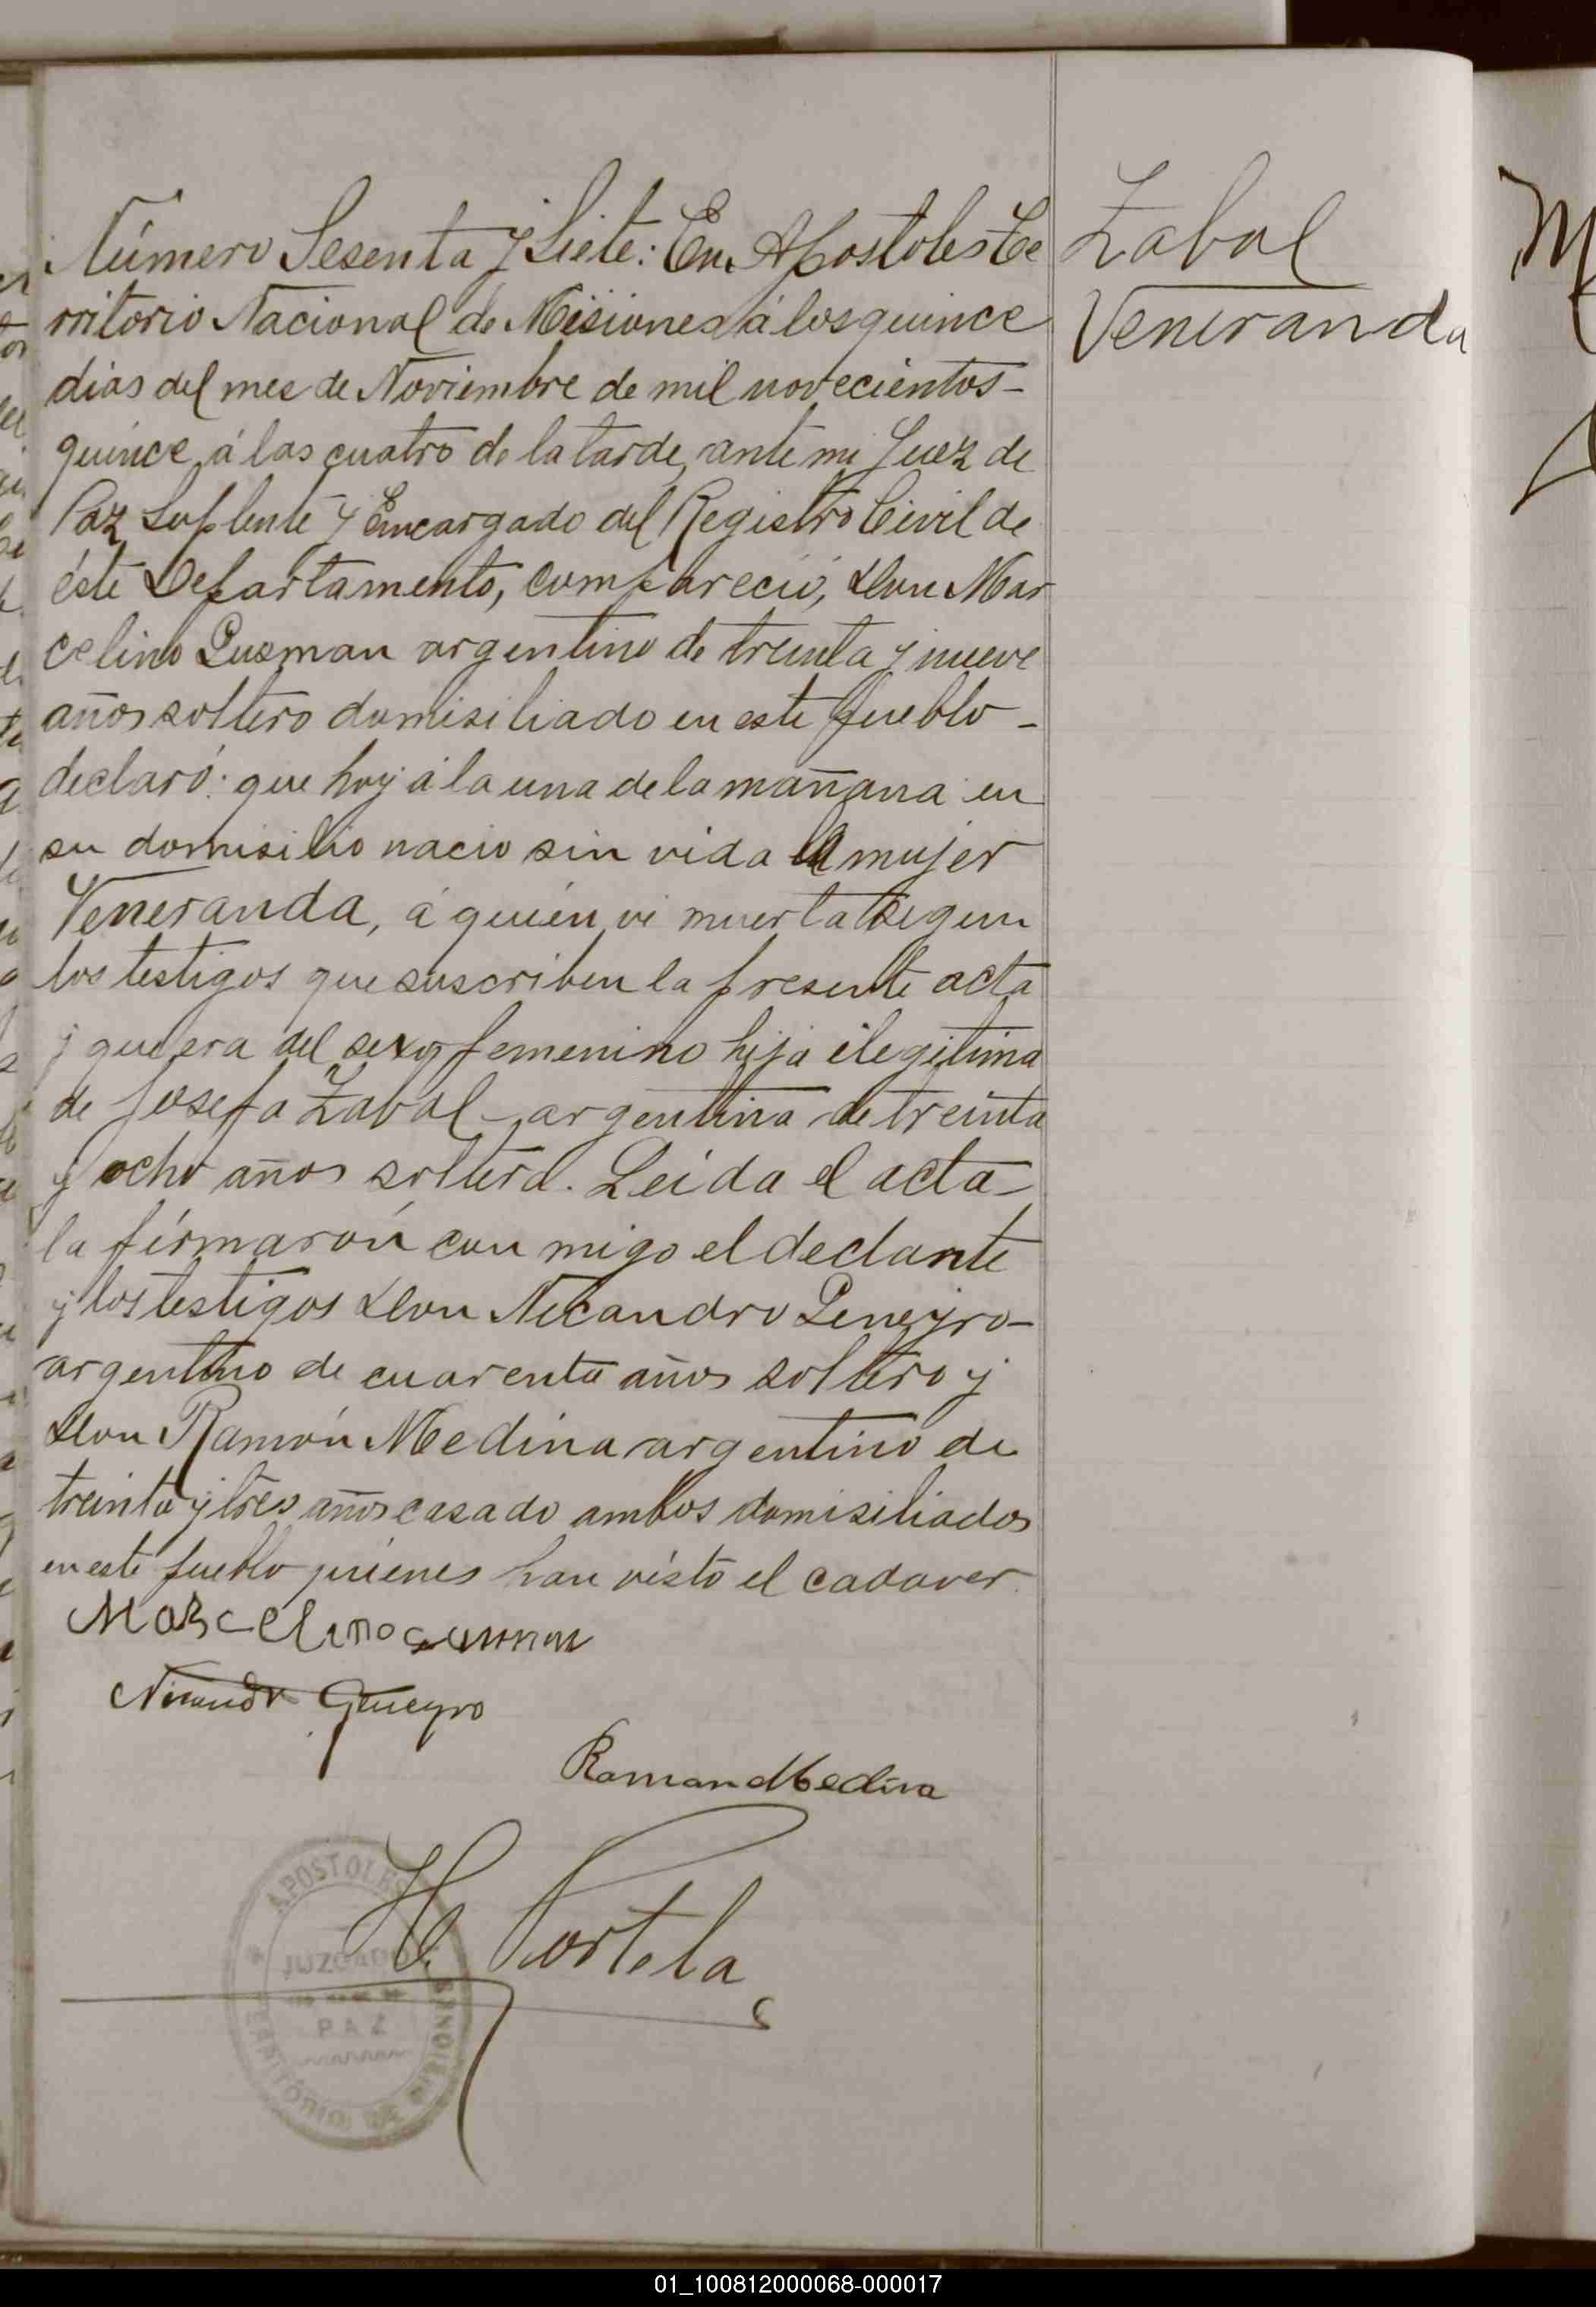 Número Sesenta y Siete: En Apostoles Te
rritorio Nacional de Misiones á los quince
dias del mes de Noviembre de mil novecientos-
quince, á las cuatro de la tarde, ante mi Juez de
Paz Suplente y Encargado del Registro Civil de
éste Departamento, compareció, Don Mar
celino Gusman argentino de treinta y nueve
años soltero domisiliado en este pueblo-
declaró: que hoy á la una de la mañana en
su domisilio nacio sin vida la mujer
Veneranda, á quién vi muerta segun
los testigos que suscriben la presente acta
y que era del sexo femenino hija ilegitima
de Josefa Zabal argentina de treinta
y ocho años soltera. Leida el acta
la firmarón con migo el declante
y los testigos Don Nicandro Geneyro-
argentino de cuarenta años soltero y
Don Ramón Medina argentino de
treinta y tres años casado ambos domisiliados
en este pueblo quienes han visto el cadaver.
Marcelino
Geneyro
Ramon Medina
H. Portela
APOSTOLES
JUZGADO
DE
PAZ
TERRITORIO DE MISIONES
Zabal
Veneranda
01_100812000068-000017